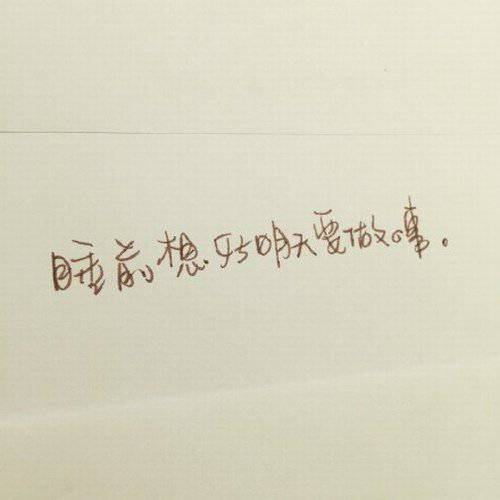 睡前想好明天要做嘅事。